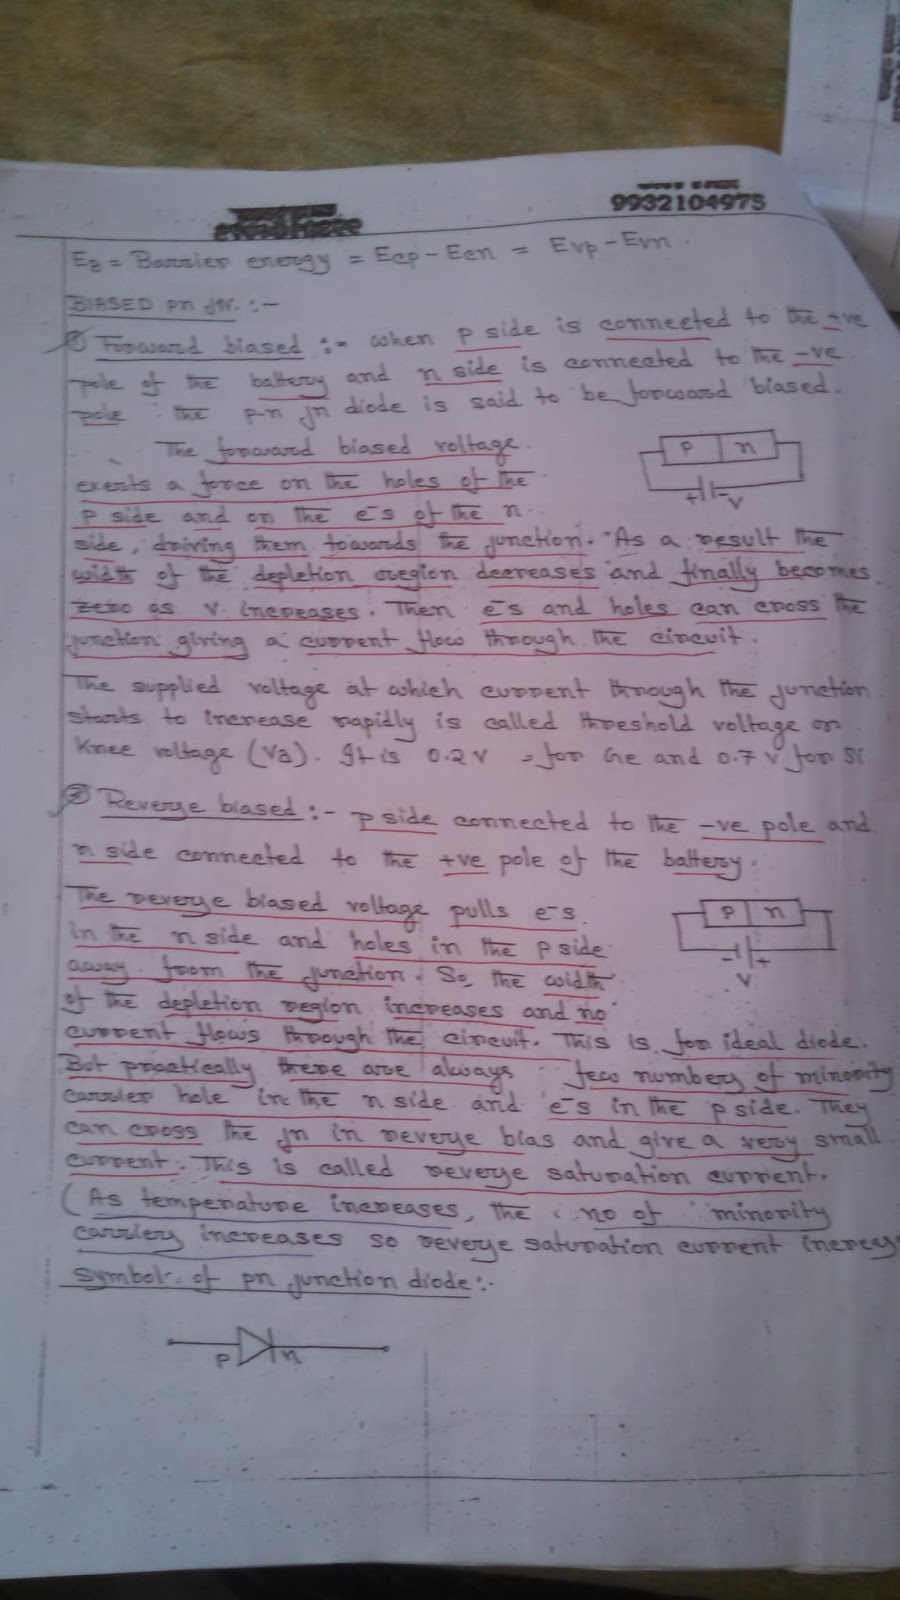 9932104975
E_B = Barrier energy = Ecp - Ecn = Evp - Evn.
BIASED pn JN. :-
① Forward biased :- when p side is connected to the +ve
pole of the battery and n side is connected to the -ve
pole the p-n jn diode is said to be forward biased.
The forward biased voltage
exerts a force on the holes of the
p n
p side and on the e-s of the n
+ - V
side, driving them towards the junction. As a result the
width of the depletion region decreases and finally becomes
zero as V increases. Then e-s and holes can cross the
junction giving a current flow through the circuit.
The supplied voltage at which current through the junction
starts to increase rapidly is called threshold voltage or
Knee voltage (Va). It is 0.2 V for Ge and 0.7 V for Si
② Reverse biased :- p side connected to the -ve pole and
n side connected to the +ve pole of the battery.
The reverse biased voltage pulls e-s
in the n side and holes in the p side
p n
away from the junction. So, the width
- +
V
of the depletion region increases and no
current flows through the circuit. This is for ideal diode.
But practically there are always few numbers of minority
carrier hole in the n side and e-s in the p side. They
can cross the jn in reverse bias and give a very small
current. This is called reverse saturation current.
(As temperature increases, the no of minority
carriers increases so reverse saturation current increas
symbol of pn junction diode :-
p n